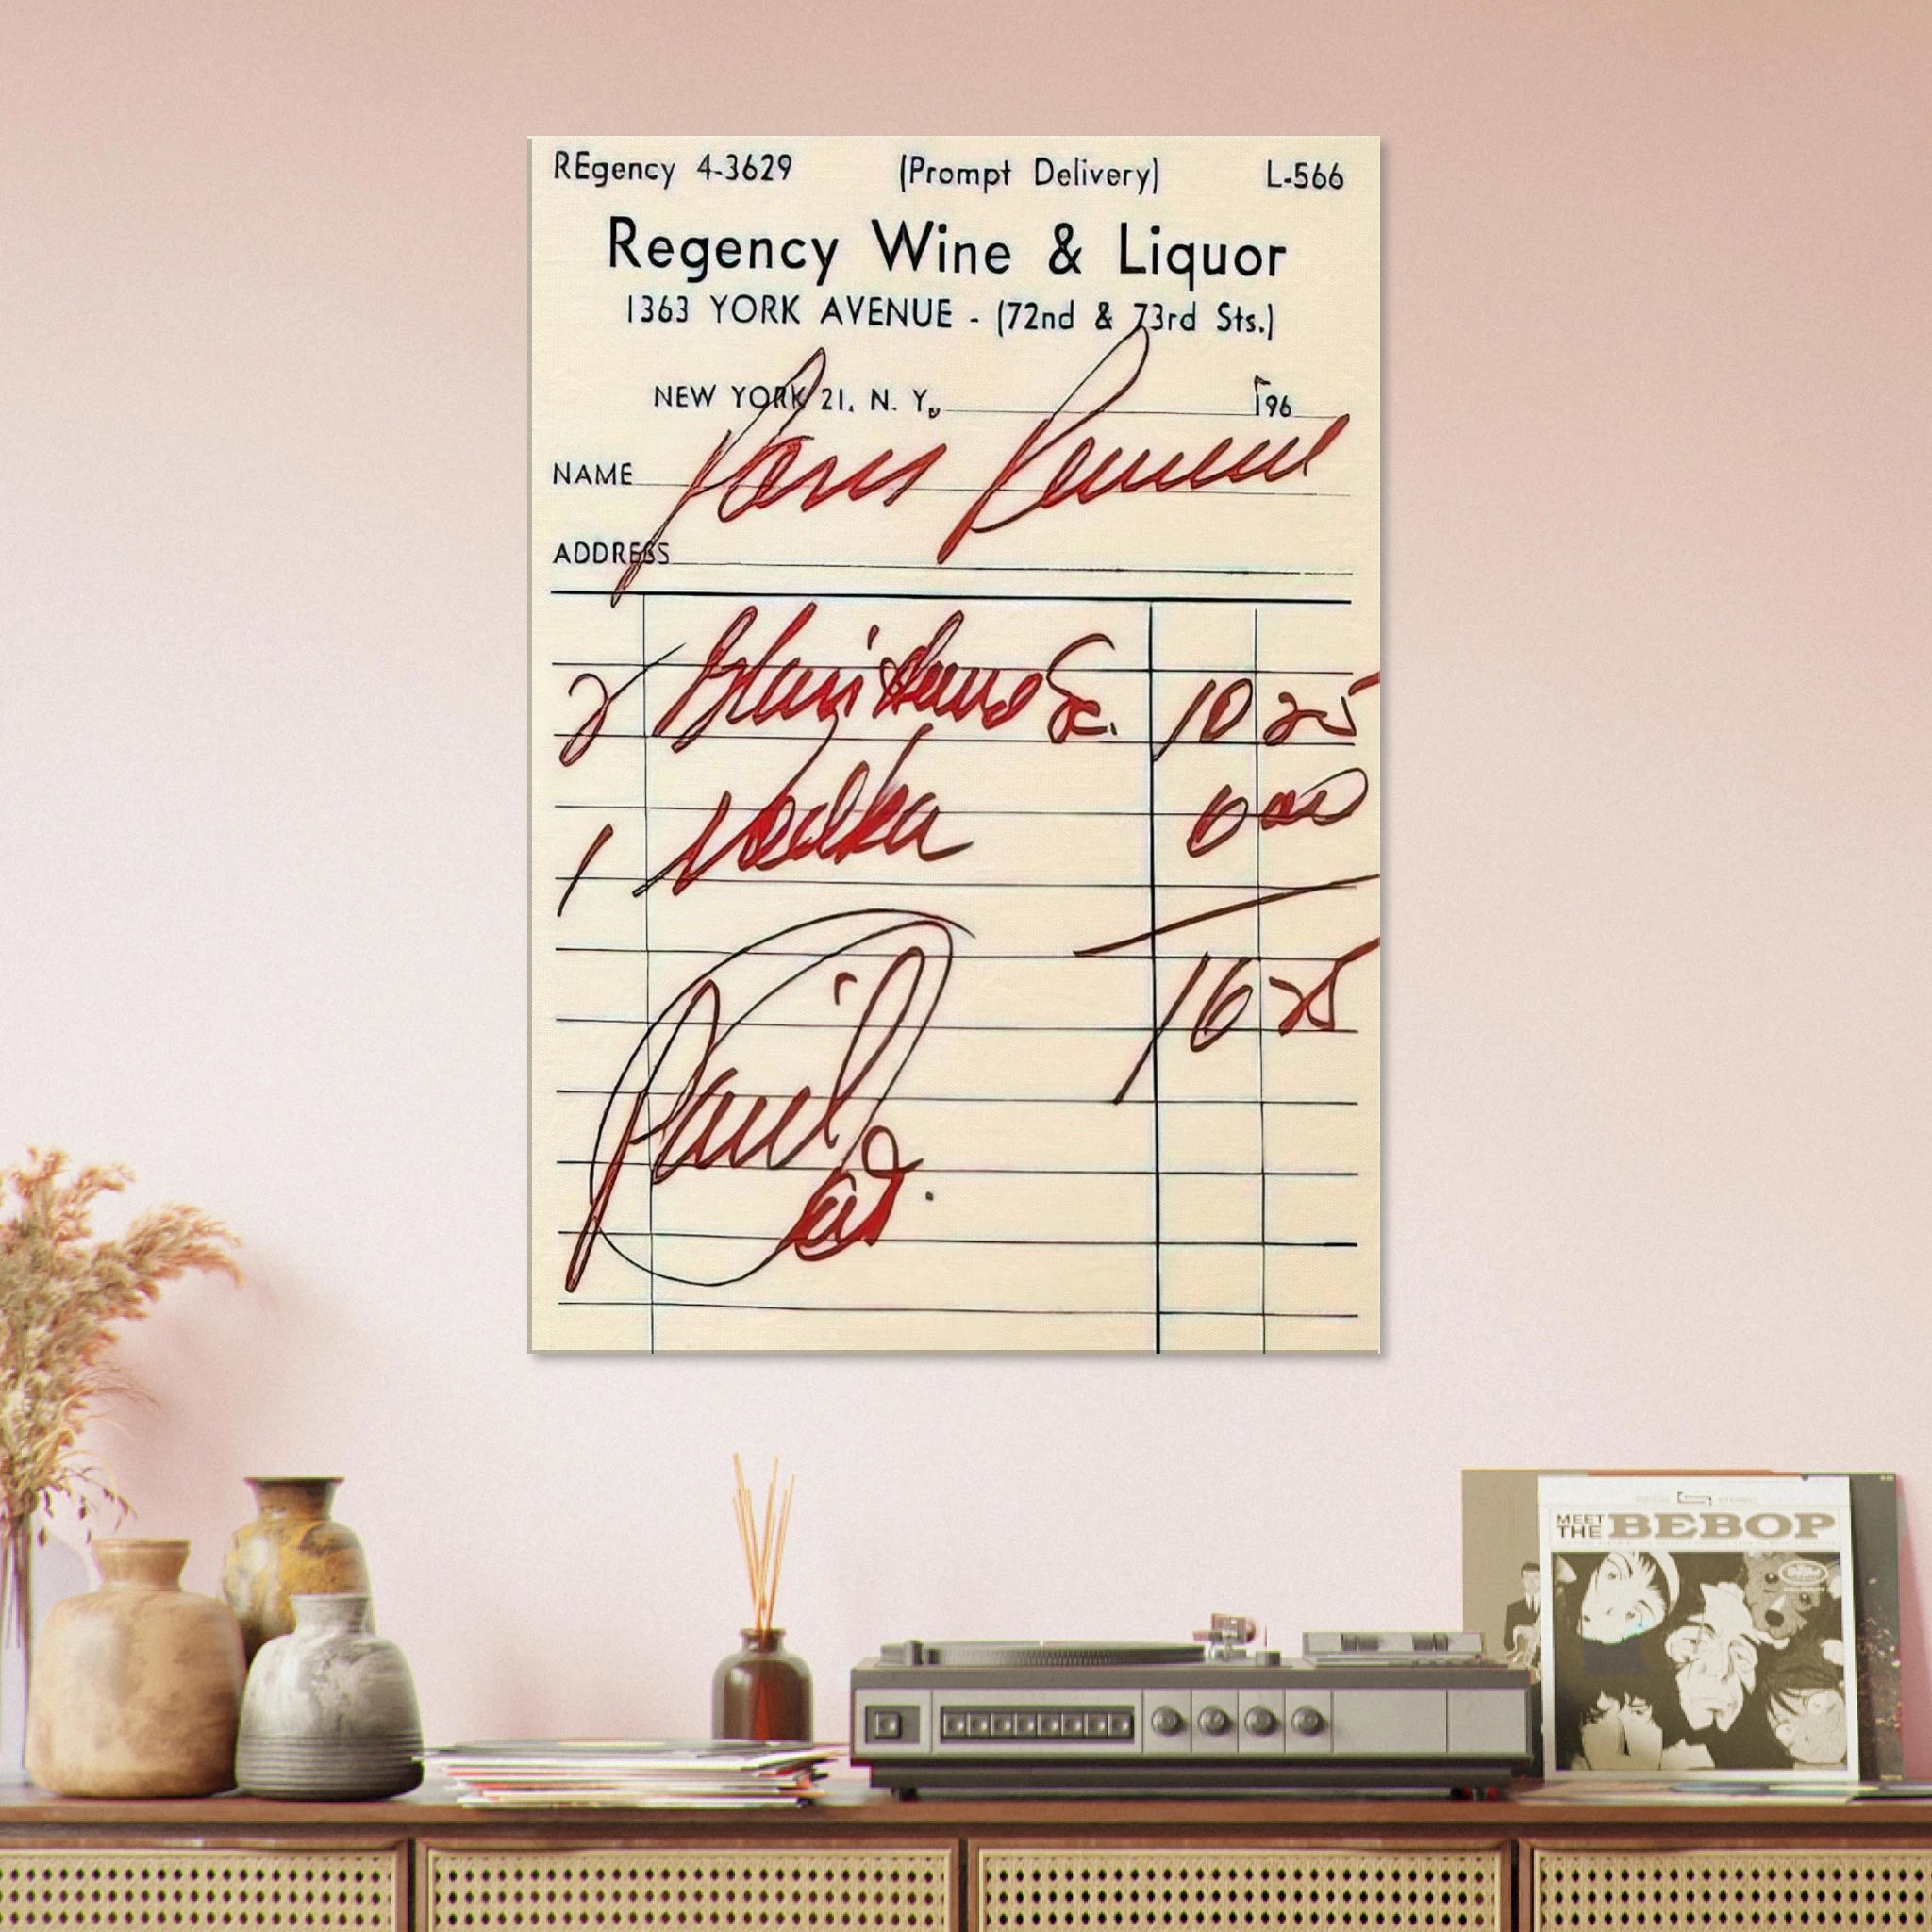 REgency 4-3629 (Prompt Delivery) L-566
Regency Wine & Liquor
1363 YORK AVENUE - (72nd & 73rd Sts.)
NEW YORK 21, N. Y. 196
NAME
ADDRESS
2 10 25
1 Vodka 6 00
16 25
Paid
MEET THE BEBOP